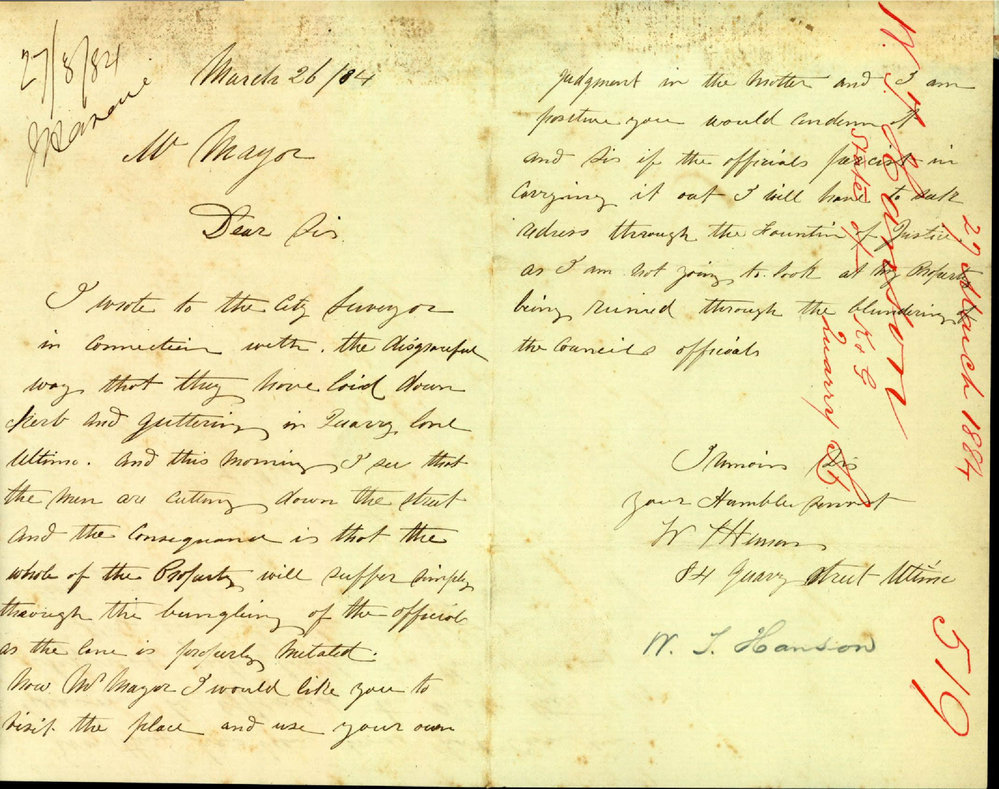 27/3/84
March 26/84
Mr Mayor
Dear Sir
I wrote to the City Surveyor
in connection with the disgraceful
way that they have laid down
Kerb and guttering in Quarry lane
Ultimo. And this morning I see that
the men are cutting down the street
and the consequence is that the
whole of the Property will suffer simply
through the bungling of the officials
as the lane is properly metaled.
Now Mr Mayor I would like you to
visit the place and use your own
judgment in the mother and I am
positive you would condemn it
and Sir if the officials persist in
carrying it out I will have to seek
redress through the Fountin of Justice
as I am not going to look at my Property
being ruined through the blundering of
the Councils officials
I remain Sir
your Humble servant
W T Henson
84 Quarry street Ultimo
W. T. Hanson
W. T. Hanson
State of K & G
Quarry St
27 March 1884
519